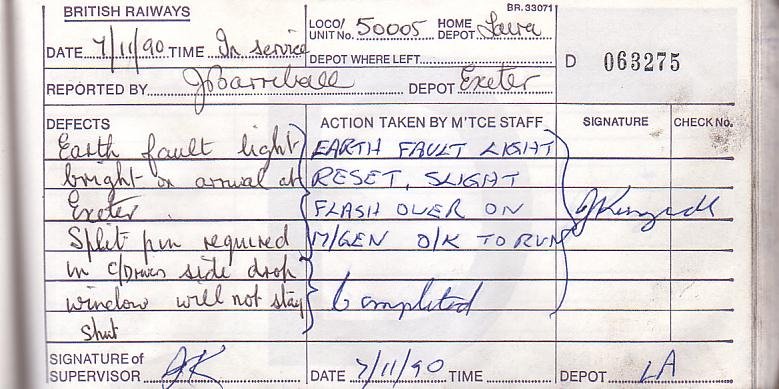 BRITISH RAIWAYS
BR. 33071
LOCO/ UNIT No. 50005 HOME DEPOT Laira
DATE 7/11/90 TIME In service
DEPOT WHERE LEFT
D 063275
REPORTED BY J Barreball DEPOT Exeter
DEFECTS
ACTION TAKEN BY M'TCE STAFF
SIGNATURE
CHECK No.
Earth fault light
bright on arrival at
Exeter.
Split pin required
in c/Drivers side drop
window will not stay
shut
EARTH FAULT LIGHT
RESET, SLIGHT
FLASH OVER ON
M/GEN O/K TO RUN
Completed
SIGNATURE of SUPERVISOR JK
DATE 7/11/90 TIME
DEPOT LA